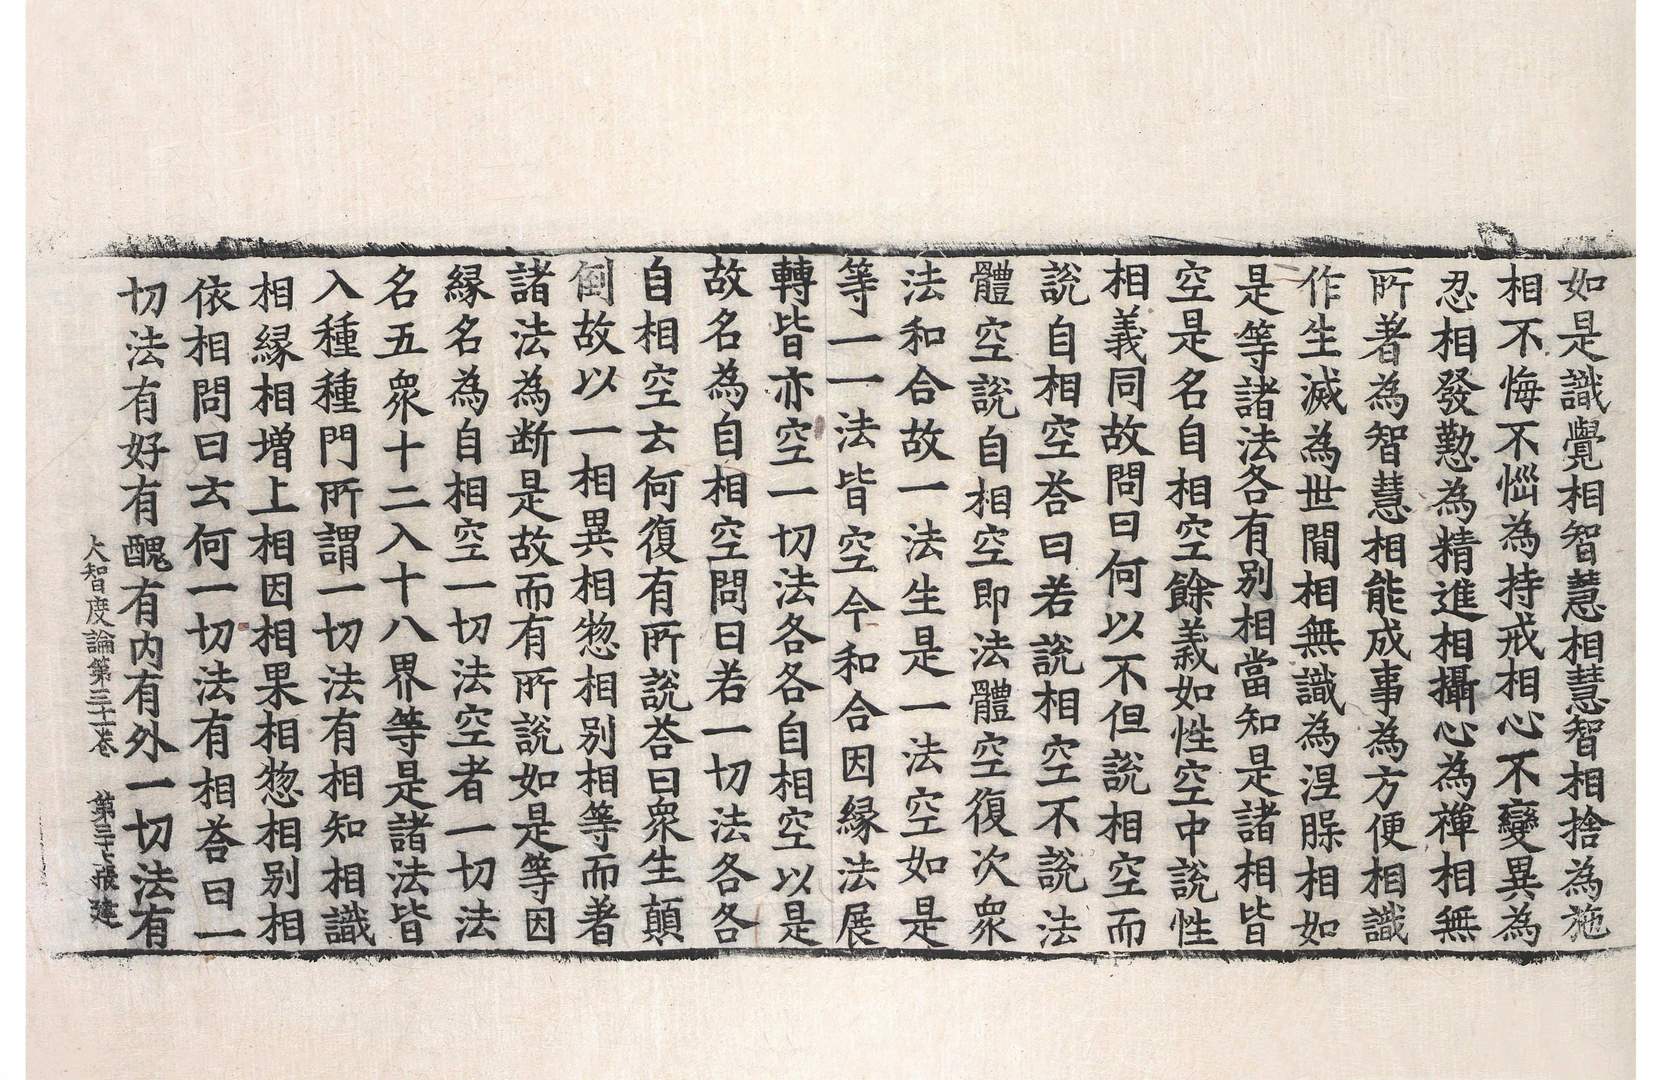 如是識覺相智慧相慧智相捨為施
相不悔不惱為持戒相心不變異為
忍相發懃為精進相攝心為禪相無
所著為智慧相能成事為方便相識
作生滅為世間相無識為涅槃相如
是等諸法各有別相當知是諸相皆
空是名自相空餘義如性空中說性
相義同故問曰何以不但說相空而
說自相空荅曰若說相空不說法
體空說自相空即法體空復次衆
法和合故一法生是一法空如是
等一一法皆空今和合因緣法展
轉皆亦空一切法各各自相空以是
故名為自相空問曰若一切法各各
自相空云何復有所說荅曰衆生顛
倒故以一相異相惣相別相等而著
諸法為断是故而有所說如是等因
緣名為自相空一切法空者一切法
名五衆十二入十八界等是諸法皆
入種種門所謂一切法有相知相識
相緣相增上相因相果相惣相別相
依相問曰云何一切法有相荅曰一
切法有好有醜有內有外一切法有
大智度論第三十一卷 第三十七張 建